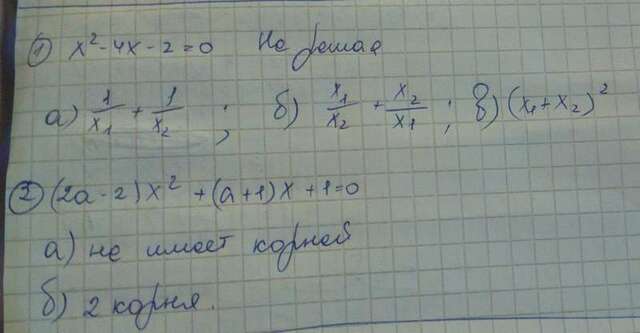 ① x² - 4x - 2 = 0 Не решая
а) 1/x₁ + 1/x₂ ; б) x₁/x₂ + x₂/x₁ ; в) (x₁+x₂)²
② (2a-2)x² + (a+1)x + 1 = 0
а) не имеет корней
б) 2 корня.